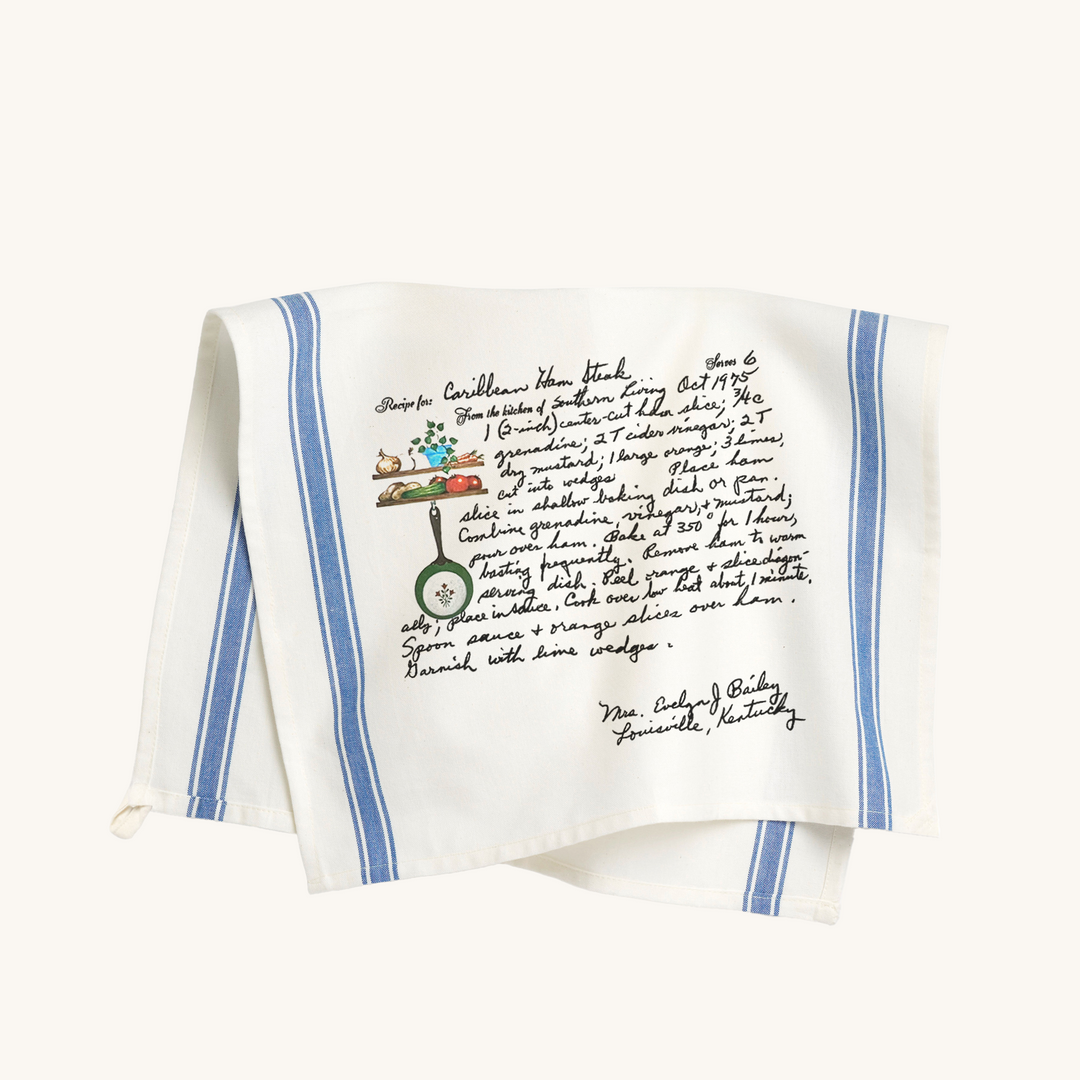 Serves 6
Recipe for: Caribbean Ham Steak
From the kitchen of Southern Living Oct 1975
1 (2-inch) center-cut ham slice; 3/4 c
grenadine; 2 T cider vinegar; 2 T
dry mustard; 1 large orange; 3 limes,
cut into wedges Place ham
slice in shallow baking dish or pan.
Combine grenadine, vinegar, + mustard;
pour over ham. Bake at 350° for 1 hour,
basting frequently. Remove ham to warm
serving dish. Peel orange + slice diagon-
ally; place in sauce. Cook over low heat about 1 minute.
Spoon sauce + orange slices over ham.
Garnish with lime wedges.
Mrs. Evelyn J Bailey
Louisville, Kentucky